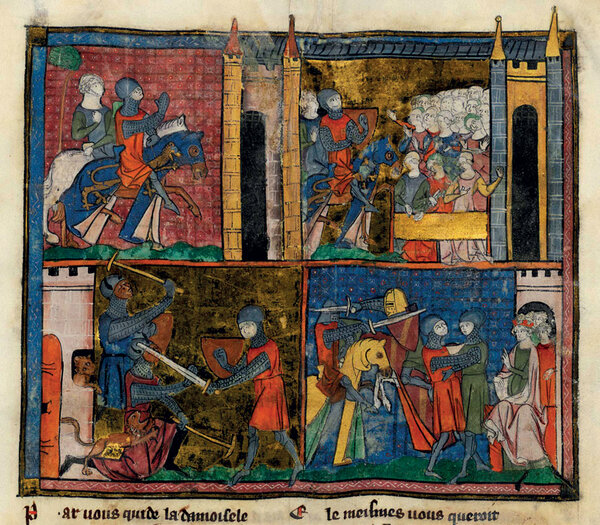 Par vous quide la damoisele
Ele meismes vous queroit